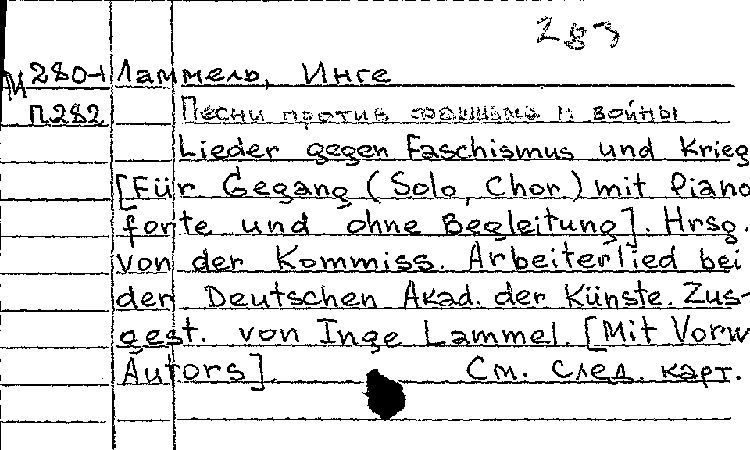 283
М 280-1 Ламмель, Инге
П282 Песни против фашизма и войны
Lieder gegen Faschismus und Krieg
[Für Gegang (Solo, Chor) mit Piano
forte und ohne Begleitung]. Hrsg.
von der Kommiss. Arbeiterlied bei
der Deutschen Akad. der Künste. Zus-
gest. von Inge Lammel. [Mit Vorw
Autors] См. след. карт.